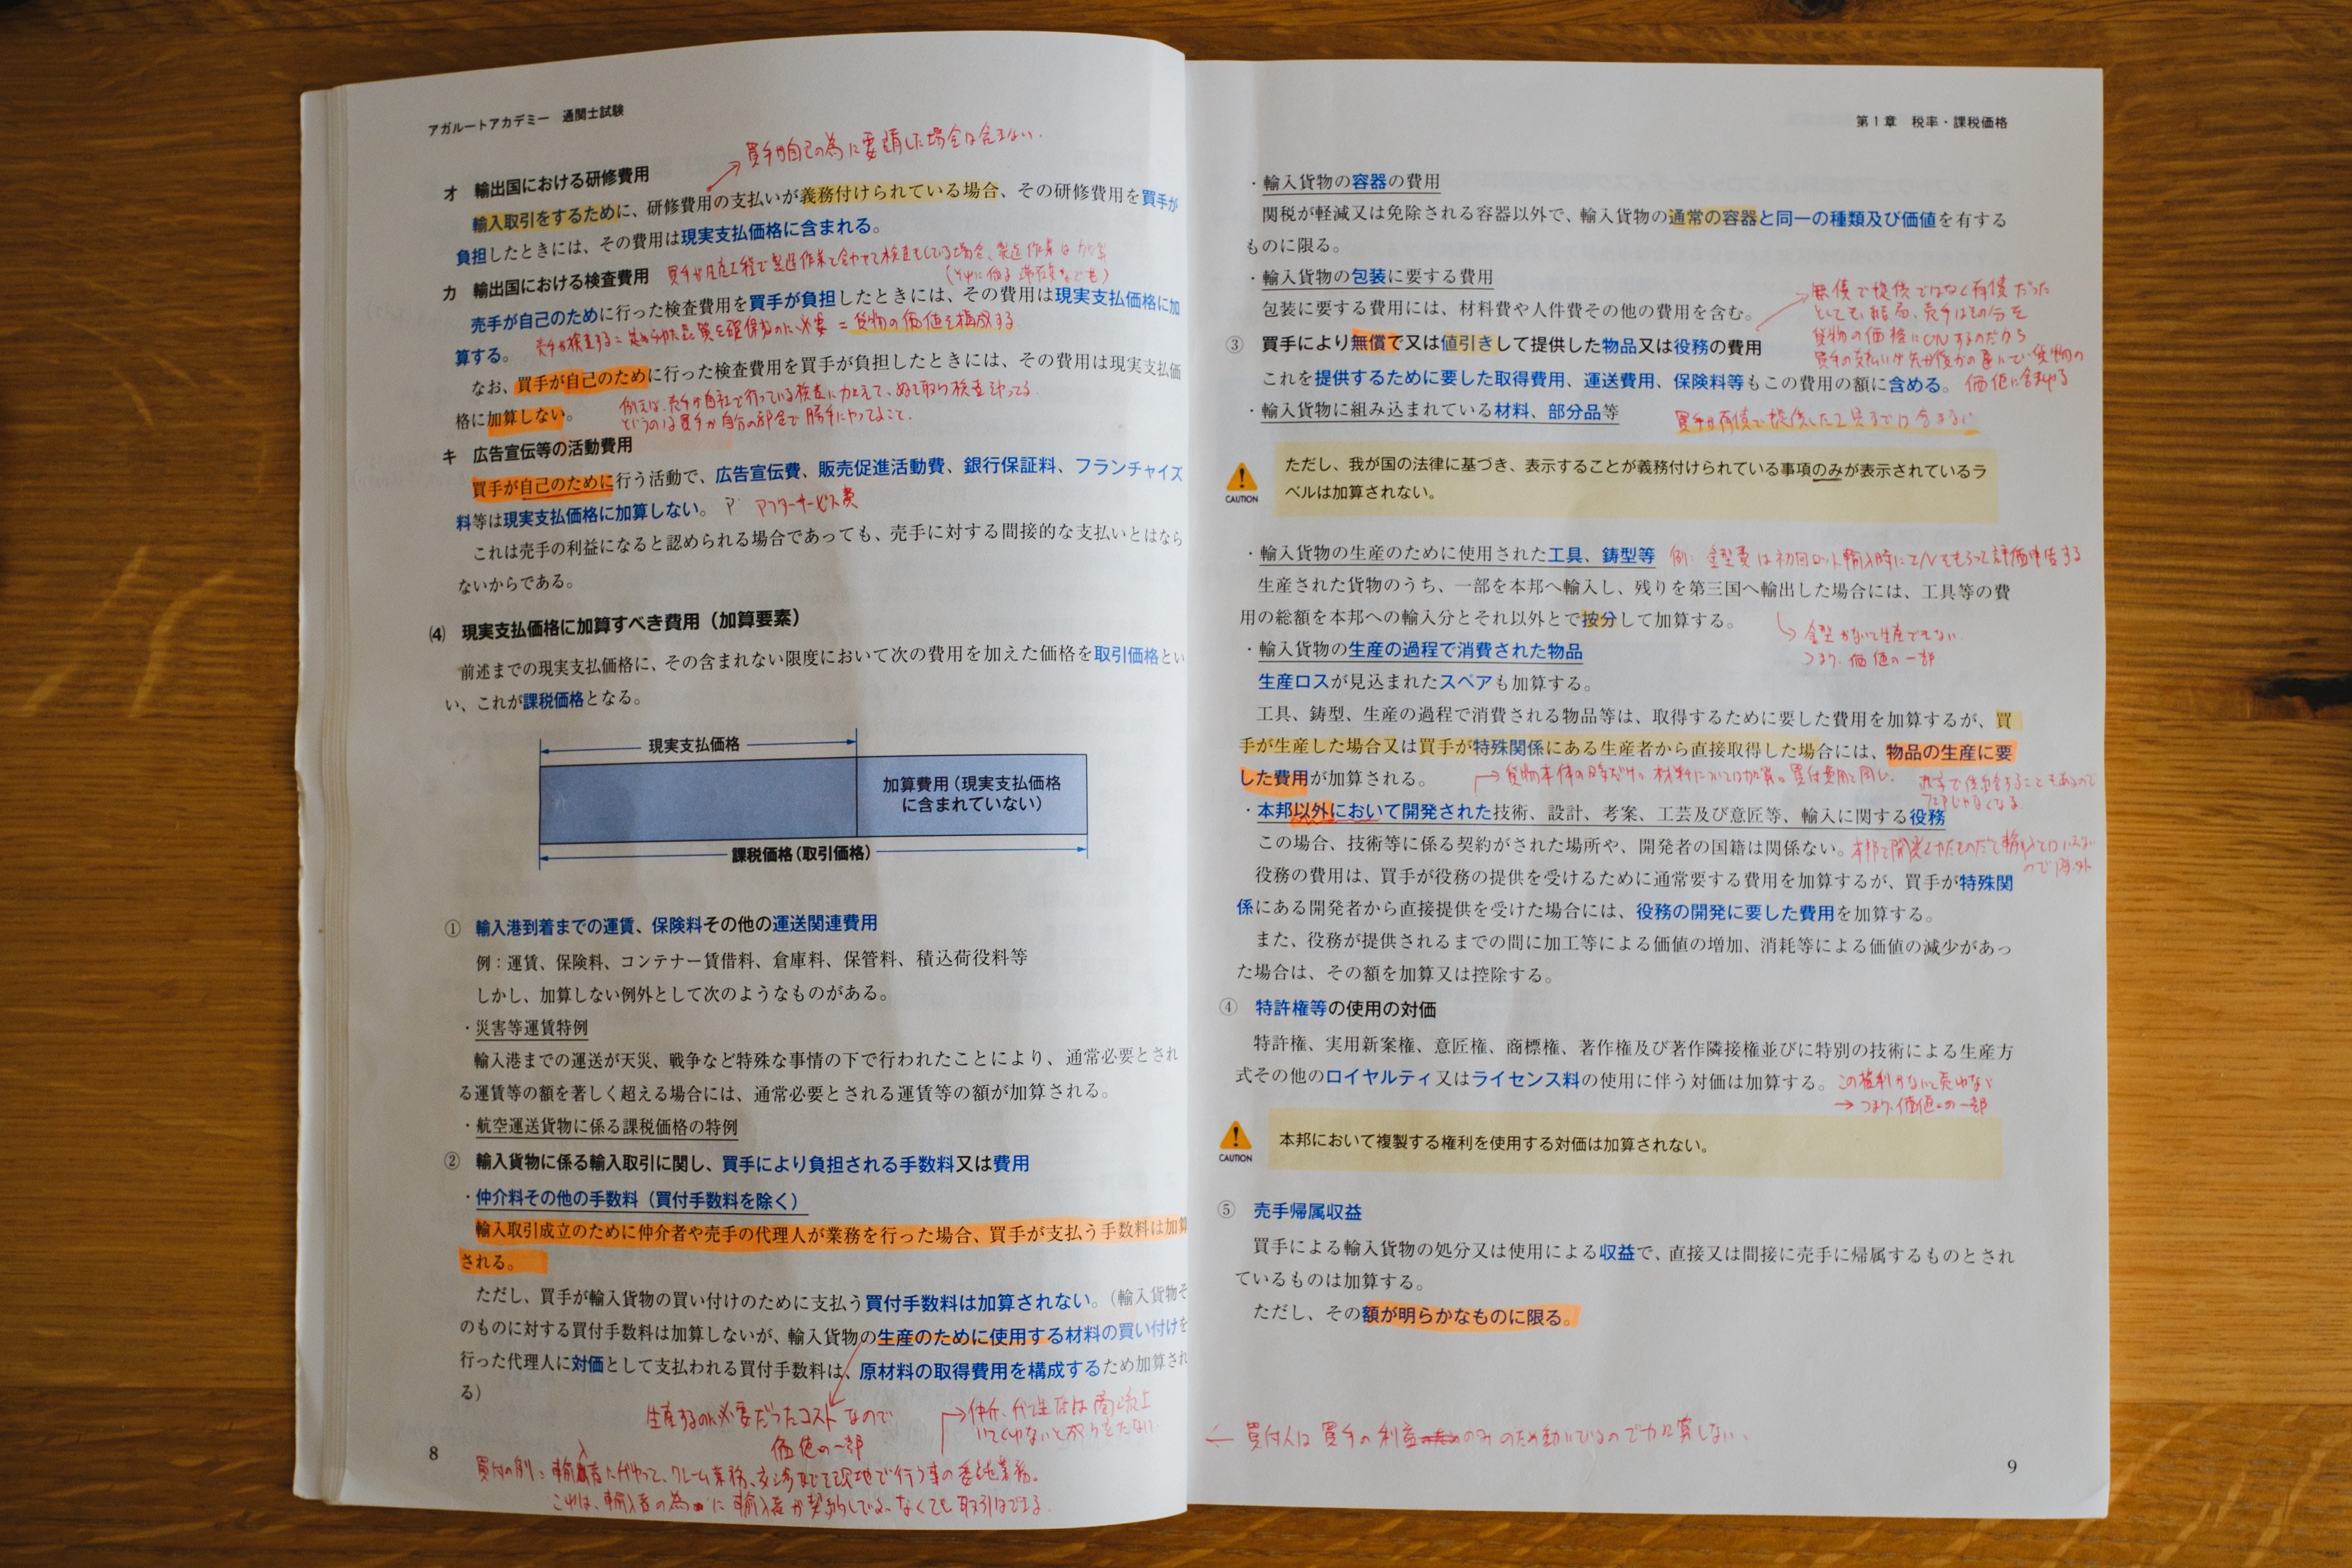 アガルートアカデミー　通関士試験
買手が自己の為に要請した場合は含まない.
オ　輸出国における研修費用
輸入取引をするために、研修費用の支払いが義務付けられている場合、その研修費用を買手が
負担したときには、その費用は現実支払価格に含まれる。
カ　輸出国における検査費用
売手が自己のために行った検査費用を買手が負担したときには、その費用は現実支払価格に加
算する。
貨物の価値を構成する
なお、買手が自己のために行った検査費用を買手が負担したときには、その費用は現実支払価
格に加算しない。
というのは買手が自分の都合で勝手にやってること.
キ　広告宣伝等の活動費用
買手が自己のために行う活動で、広告宣伝費、販売促進活動費、銀行保証料、フランチャイズ
料等は現実支払価格に加算しない。
アフターサービス費
これは売手の利益になると認められる場合であっても、売手に対する間接的な支払いとはなら
ないからである。
⑷　現実支払価格に加算すべき費用（加算要素）
前述までの現実支払価格に、その含まれない限度において次の費用を加えた価格を取引価格とい
い、これが課税価格となる。
現実支払価格
加算費用（現実支払価格
に含まれていない）
課税価格（取引価格）
①　輸入港到着までの運賃、保険料その他の運送関連費用
例：運賃、保険料、コンテナー賃借料、倉庫料、保管料、積込荷役料等
しかし、加算しない例外として次のようなものがある。
・災害等運賃特例
輸入港までの運送が天災、戦争など特殊な事情の下で行われたことにより、通常必要とされ
る運賃等の額を著しく超える場合には、通常必要とされる運賃等の額が加算される。
・航空運送貨物に係る課税価格の特例
②　輸入貨物に係る輸入取引に関し、買手により負担される手数料又は費用
・仲介料その他の手数料（買付手数料を除く）
輸入取引成立のために仲介者や売手の代理人が業務を行った場合、買手が支払う手数料は加算
される。
ただし、買手が輸入貨物の買い付けのために支払う買付手数料は加算されない。（輸入貨物そ
のものに対する買付手数料は加算しないが、輸入貨物の生産のために使用する材料の買い付けを
行った代理人に対価として支払われる買付手数料は、原材料の取得費用を構成するため加算され
る）
生産するのに必要だったコストなので
価値の一部
8
第１章　税率・課税価格
・輸入貨物の容器の費用
関税が軽減又は免除される容器以外で、輸入貨物の通常の容器と同一の種類及び価値を有する
ものに限る。
・輸入貨物の包装に要する費用
包装に要する費用には、材料費や人件費その他の費用を含む。
無償で提供ではなく有償だった
③　買手により無償で又は値引きして提供した物品又は役務の費用
これを提供するために要した取得費用、運送費用、保険料等もこの費用の額に含める。
価値に含まれる
・輸入貨物に組み込まれている材料、部分品等
CAUTION
ただし、我が国の法律に基づき、表示することが義務付けられている事項のみが表示されているラ
ベルは加算されない。
・輸入貨物の生産のために使用された工具、鋳型等
生産された貨物のうち、一部を本邦へ輸入し、残りを第三国へ輸出した場合には、工具等の費
用の総額を本邦への輸入分とそれ以外とで按分して加算する。
金型がないと生産できない.
つまり、価値の一部
・輸入貨物の生産の過程で消費された物品
生産ロスが見込まれたスペアも加算する。
工具、鋳型、生産の過程で消費される物品等は、取得するために要した費用を加算するが、買
手が生産した場合又は買手が特殊関係にある生産者から直接取得した場合には、物品の生産に要
した費用が加算される。
・本邦以外において開発された技術、設計、考案、工芸及び意匠等、輸入に関する役務
この場合、技術等に係る契約がされた場所や、開発者の国籍は関係ない。
役務の費用は、買手が役務の提供を受けるために通常要する費用を加算するが、買手が特殊関
係にある開発者から直接提供を受けた場合には、役務の開発に要した費用を加算する。
また、役務が提供されるまでの間に加工等による価値の増加、消耗等による価値の減少があっ
た場合は、その額を加算又は控除する。
④　特許権等の使用の対価
特許権、実用新案権、意匠権、商標権、著作権及び著作隣接権並びに特別の技術による生産方
式その他のロイヤルティ又はライセンス料の使用に伴う対価は加算する。
この権利がないと売れない
→つまり、価値の一部
CAUTION
本邦において複製する権利を使用する対価は加算されない。
⑤　売手帰属収益
買手による輸入貨物の処分又は使用による収益で、直接又は間接に売手に帰属するものとされ
ているものは加算する。
ただし、その額が明らかなものに限る。
9